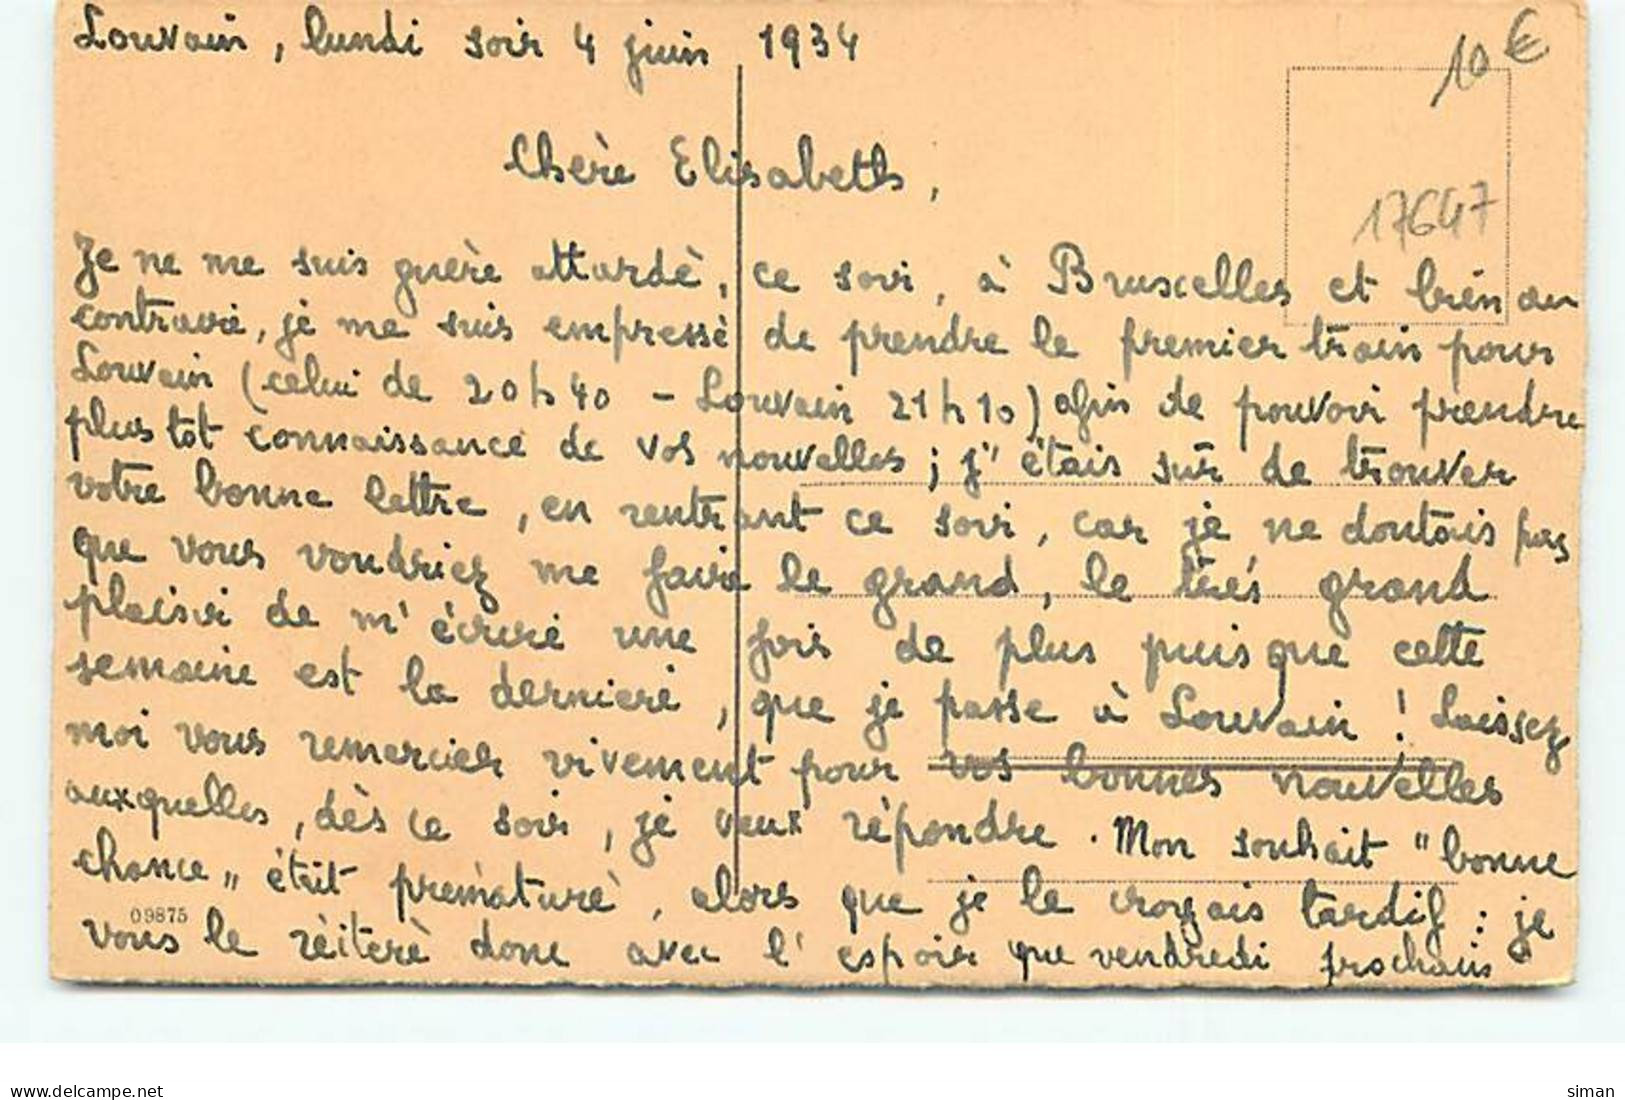 Louvain, lundi soir 4 juin 1934
10 €
17647
Chère Elisabeth,
Je ne me suis guère attardé, ce soir, à Bruxelles et bien au
contraire, je me suis empressé de prendre le premier train pour
Louvain (celui de 20h40 - Louvain 21h10) afin de pouvoir prendre
plus tôt connaissance de vos nouvelles ; j'étais sûr de trouver
votre bonne lettre, en rentrant ce soir, car je ne doutais pas
que vous voudriez me faire le grand, le très grand
plaisir de m'écrire une fois de plus puisque cette
semaine est la dernière, que je passe à Louvain ! Laissez
moi vous remercier vivement pour vos bonnes nouvelles
auxquelles, dès ce soir, je veux répondre. Mon souhait "bonne
chance" était prématuré, alors que je le croyais tardif : je
09875
vous le réitère donc avec l'espoir que vendredi prochain
Delcampe.net
siman